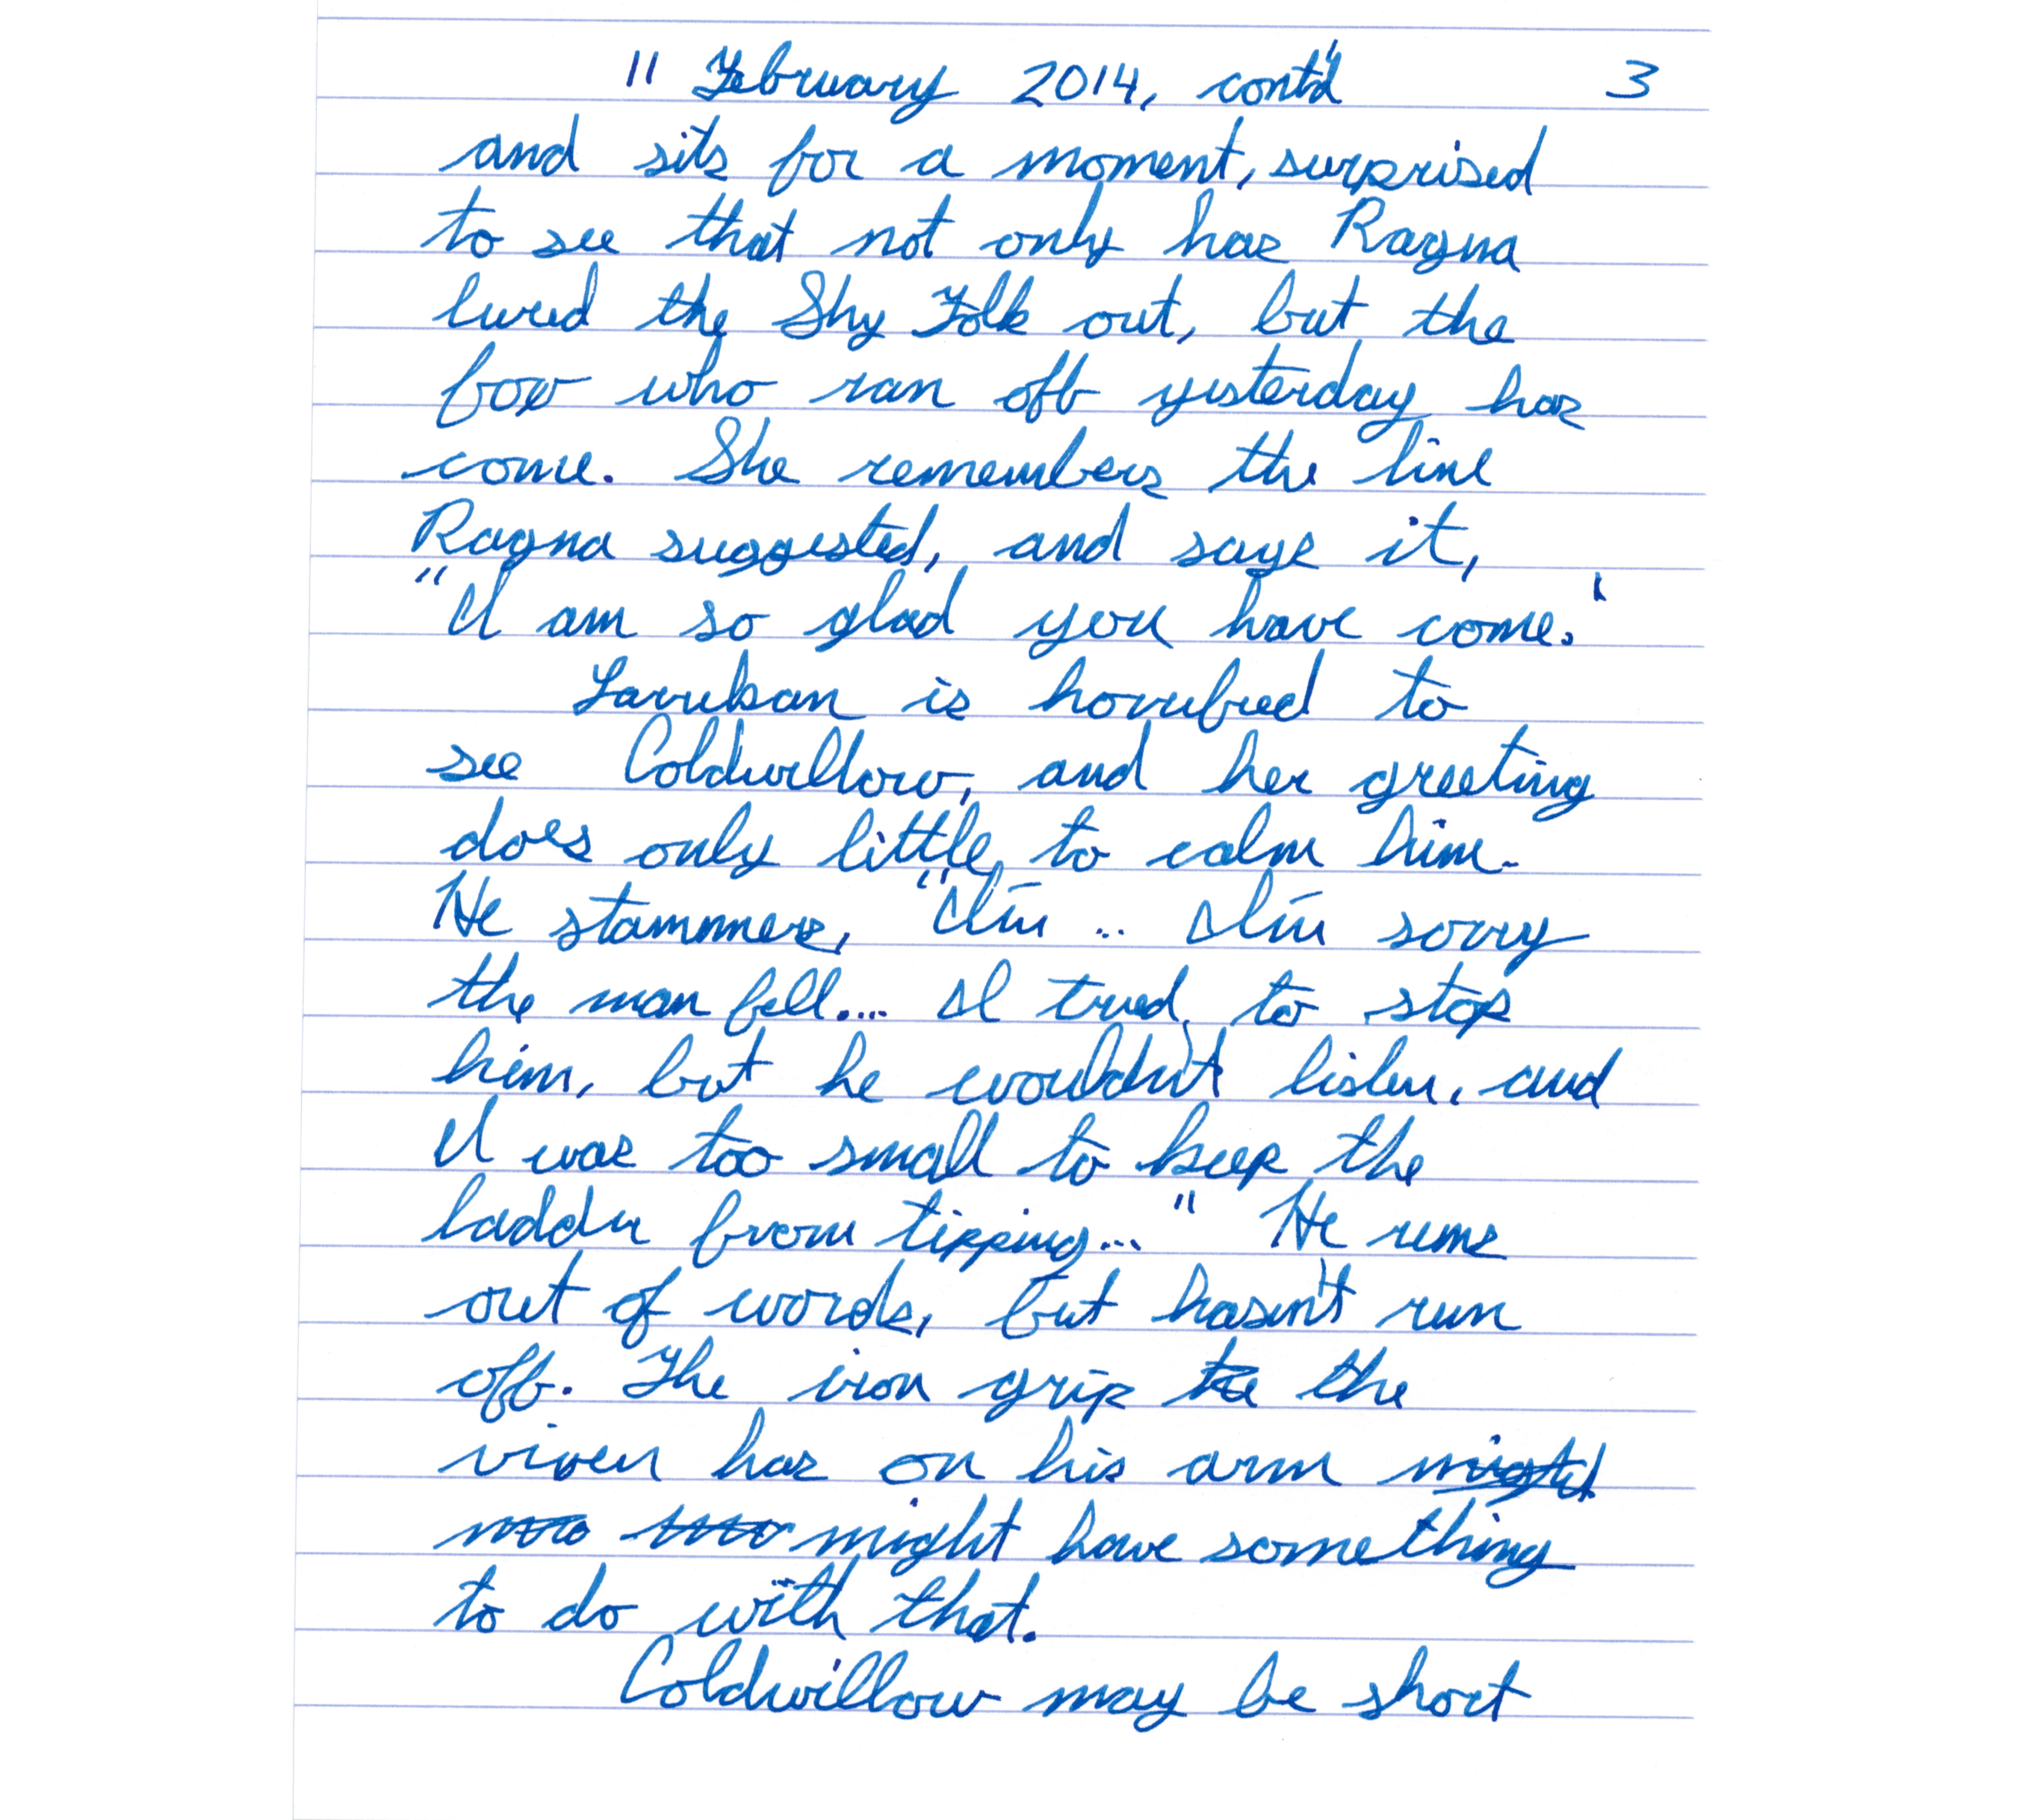 11 February 2014, cont'd 3
and sits for a moment, surprised
to see that not only has Ragna
lured the Shy Folk out, but the
fox who ran off yesterday has
come. She remembers the line
Ragna suggested, and says it,
"I am so glad you have come."
is horrified to
see Coldwillow, and her greeting
does only little to calm him.
He stammers, "I'm .. I'm sorry
the man fell.... I tried to stop
him, but he wouldn't listen, and
I was too small to keep the
ladder from tipping..." He runs
out of words, but hasn't run
off. The iron grip the
vixen has on his arm might
might have something
to do with that.
Coldwillow may be short